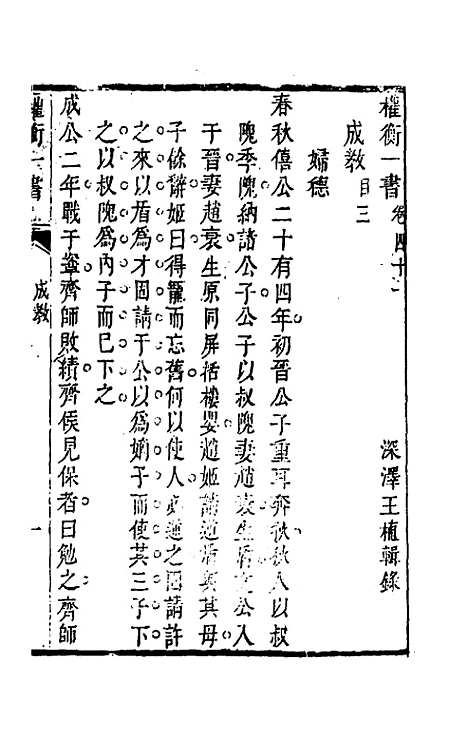 權衡一書卷四十二 深澤王植輯錄
成教目三
婦德
春秋僖公二十有四年初晉公子重耳奔狄狄人以叔
隗季隗納諸公子公子以叔隗妻趙衰生盾 公入
于晉妻趙衰生原同屏括樓嬰趙姬請逆盾與其母
子餘辭姬曰得寵而忘舊何以使人必逆之固請許
之來以盾爲才固請于公以爲嫡子而使其三子下
之以叔隗爲內子而已下之
成公二年戰于鞌齊師敗績齊侯見保者曰勉之齊師
權衡一書
成教
一